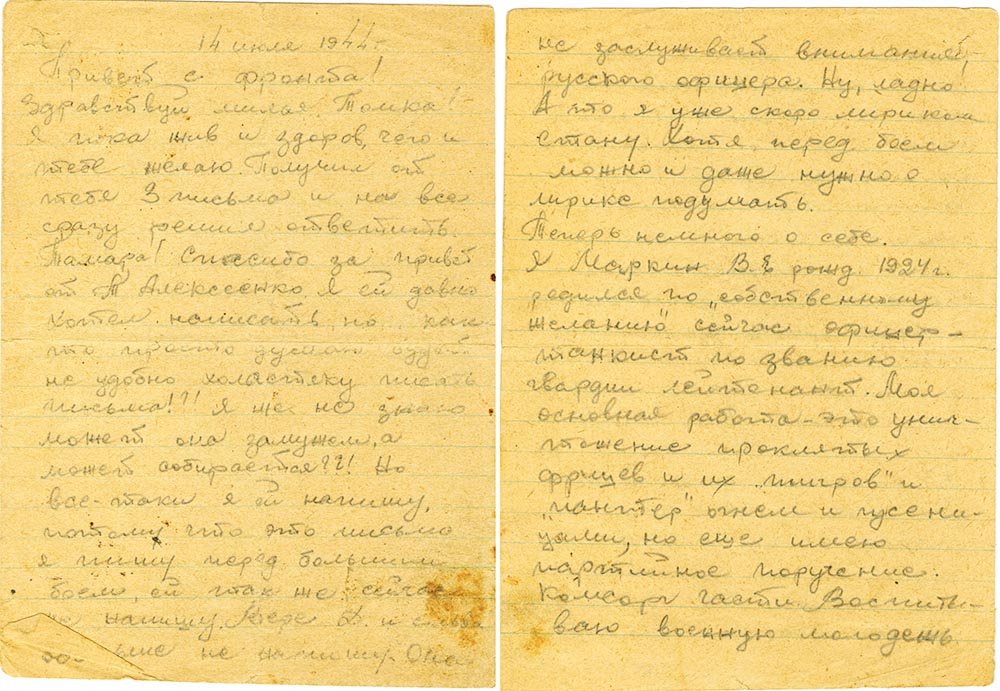 14 июля 1944 г.
Привет с фронта!
Здравствуй милая Томка!
Я пока жив и здоров, чего и
тебе желаю. Получил от
тебя 3 письма и на все
сразу решил ответить.
Тамара! Спасибо за привет
от Т Алексеенко я ей давно
хотел написать, но как
то просто думаю будет
не удобно, холостяку писать
письма!?! Я же не знаю
может она замужем, а
может собирается??! Но
все-таки я ей напишу,
потому что это письмо
я пишу перед большим
боем, ей так же сейчас
напишу. Вере В. и
не напишу. Она
не заслуживает внимания,
русского офицера. Ну, ладно!
А то я уже скоро лириком
стану. Хотя перед боем
можно и даже нужно о
лирике подумать.
Теперь немного о себе.
Я Маркин В. Е рожд. 1924 г.
родился по „собственному
желанию" сейчас офицер-
танкист по званию
гвардии лейтенант. Моя
основная работа – это унич-
тожение проклятых
фрицев и их „тигров" и
„пантер" огнем и гусени-
цами, но еще имею
партийное поручение.
Комсорг части. Воспиты-
ваю военную молодежь